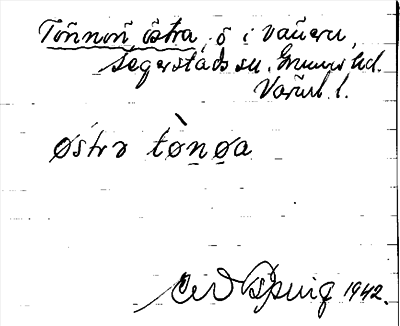 Tönnön östra, ö i Vänern,
Segerstads sn. Grums hd.
Värml. l.
østrə tònøa
1942.